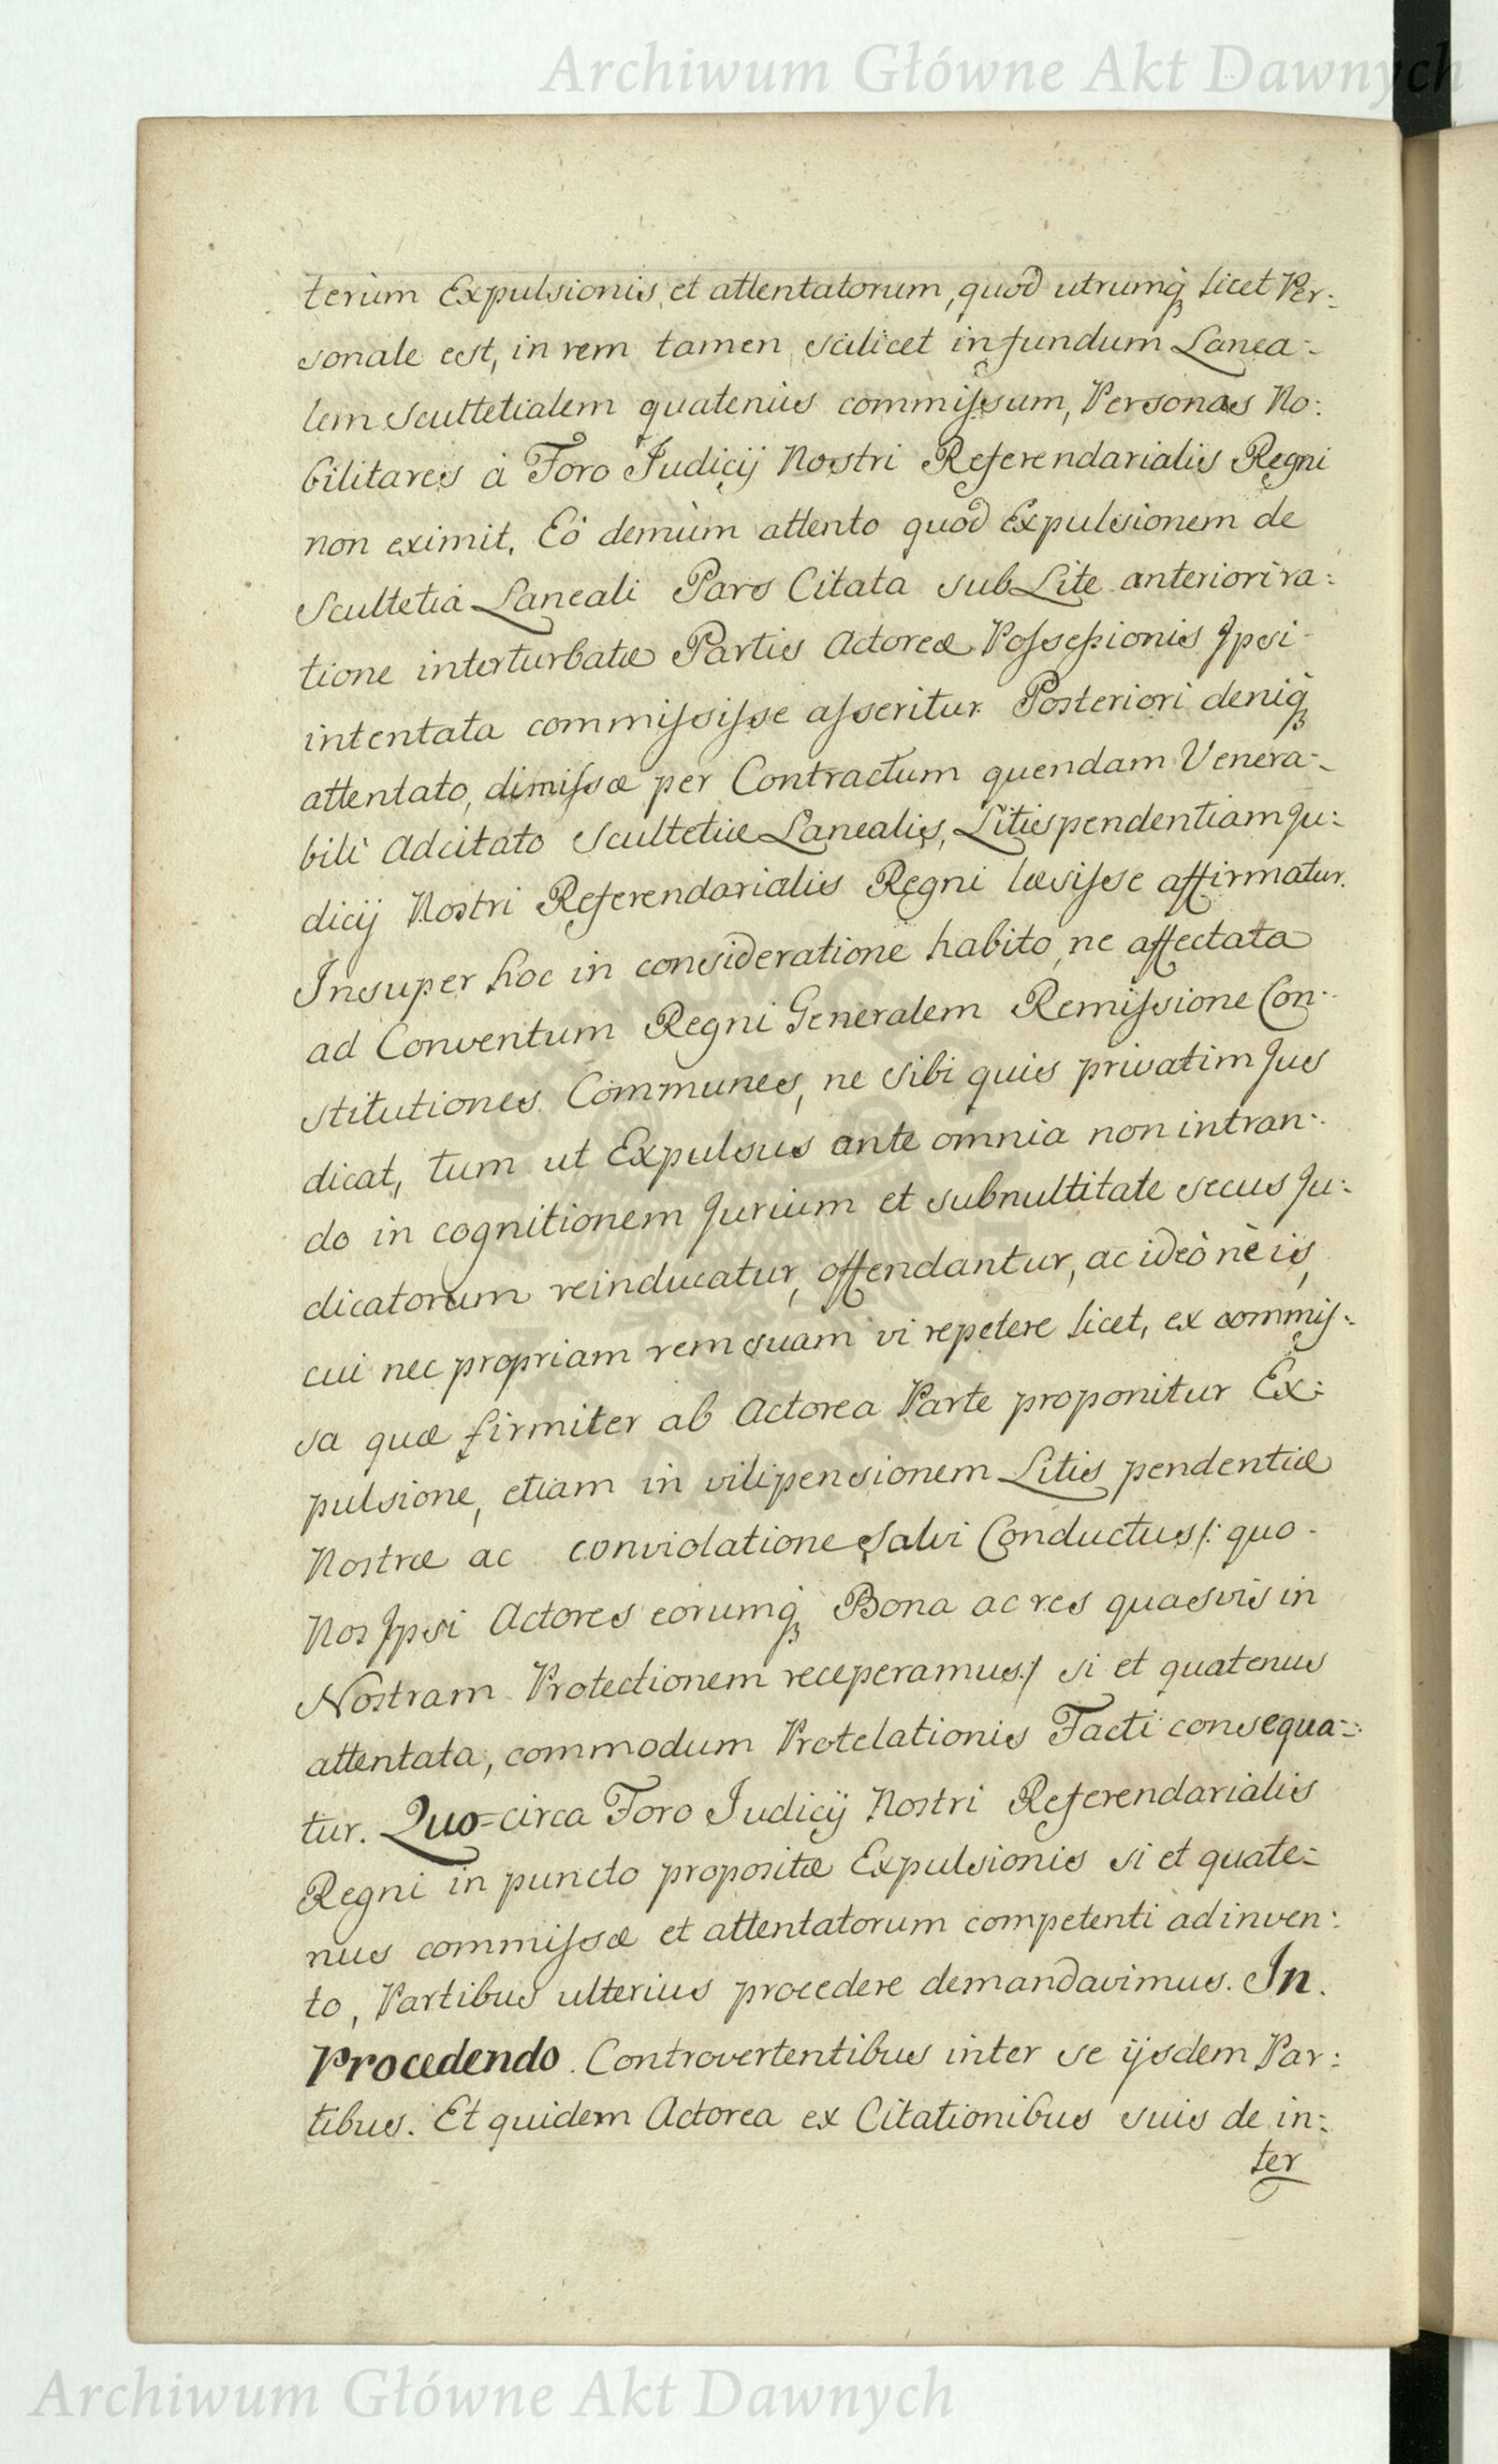 Archiwum Główne Akt Dawnych
terium Expulsionis, et attentatorum, quod utrumq́ licet Per:
sonale est, in rem tamen scilicet in fundum Lanea:
lem Scultetialem quatenùs commissum, Personas No:
bilitares à Foro Judicij Nostri Referendarialis Regni
non eximit. Eò demùm attento quod Expulsionem de
Scultetia Laneali Pars Citata sub Lite anteriori ra:
tione interturbatæ Partis Actoreæ Possessionis Ipsi
intentata commisisse asseritur. Posteriori deniq́
attentato, dimissæ per Contractum quendam Venera:
bili Adcitato Scultetiæ Lanealis, Litispendentiam Ju:
dicij Nostri Referendarialis Regni læsisse affirmatur.
Insuper hoc in consideratione habito, ne affectata
ad Conventum Regni Generalem Remissione Con:
stitutiones Communes, ne sibi quis privatim Jus
dicat, tum ut Expulsus ante omnia non intran:
do in cognitionem Jurium et sub nullitate secus Ju:
dicatorum reinducatur, offendantur, ac ideò nè is,
cui nec propriam rem suam vi repetere licet, ex commis:
sa quæ firmiter ab Actorea Parte proponitur Ex:
pulsione, etiam in vilipensionem Litis pendentiæ
Nostræ ac conviolatione Salvi Conductus /: quo
Nos Ipsi Actores eorumq́ Bona ac res quasvis in
Nostram Protectionem receperamus :/ si et quatenus
attentata, commodum Protelationis Facti consequa:
tur. Quo=circa Foro Judicij Nostri Referendarialis
Regni in puncto propositæ Expulsionis si et quate:
nus commissæ et attentatorum competenti adinven:
to, Partibus ulterius procedere demandavimus. In
Procedendo. Controvertentibus inter se ijsdem Par:
tibus. Et quidem Actorea ex Citationibus suis de in:
ter
Archiwum Główne Akt Dawnych